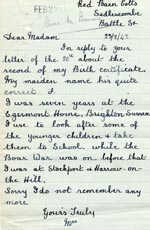 Red Barn Cotts
FEB 25
Sedlescombe
Battle Sx
23/2/62
Dear Madam
In reply to your
letter of the 20th about the
record of my Birth certificate.
My maiden name his quite
correct
I was seven years at the
Egermont Home, Brighton Sussex
I use to look after some of
the younger children & take
them to School, while the
Boar War was on. before that
I was at Stockport & Harrow-on-
the Hill.
Sorry I do not remember any
more
Yours Truly
Mrs